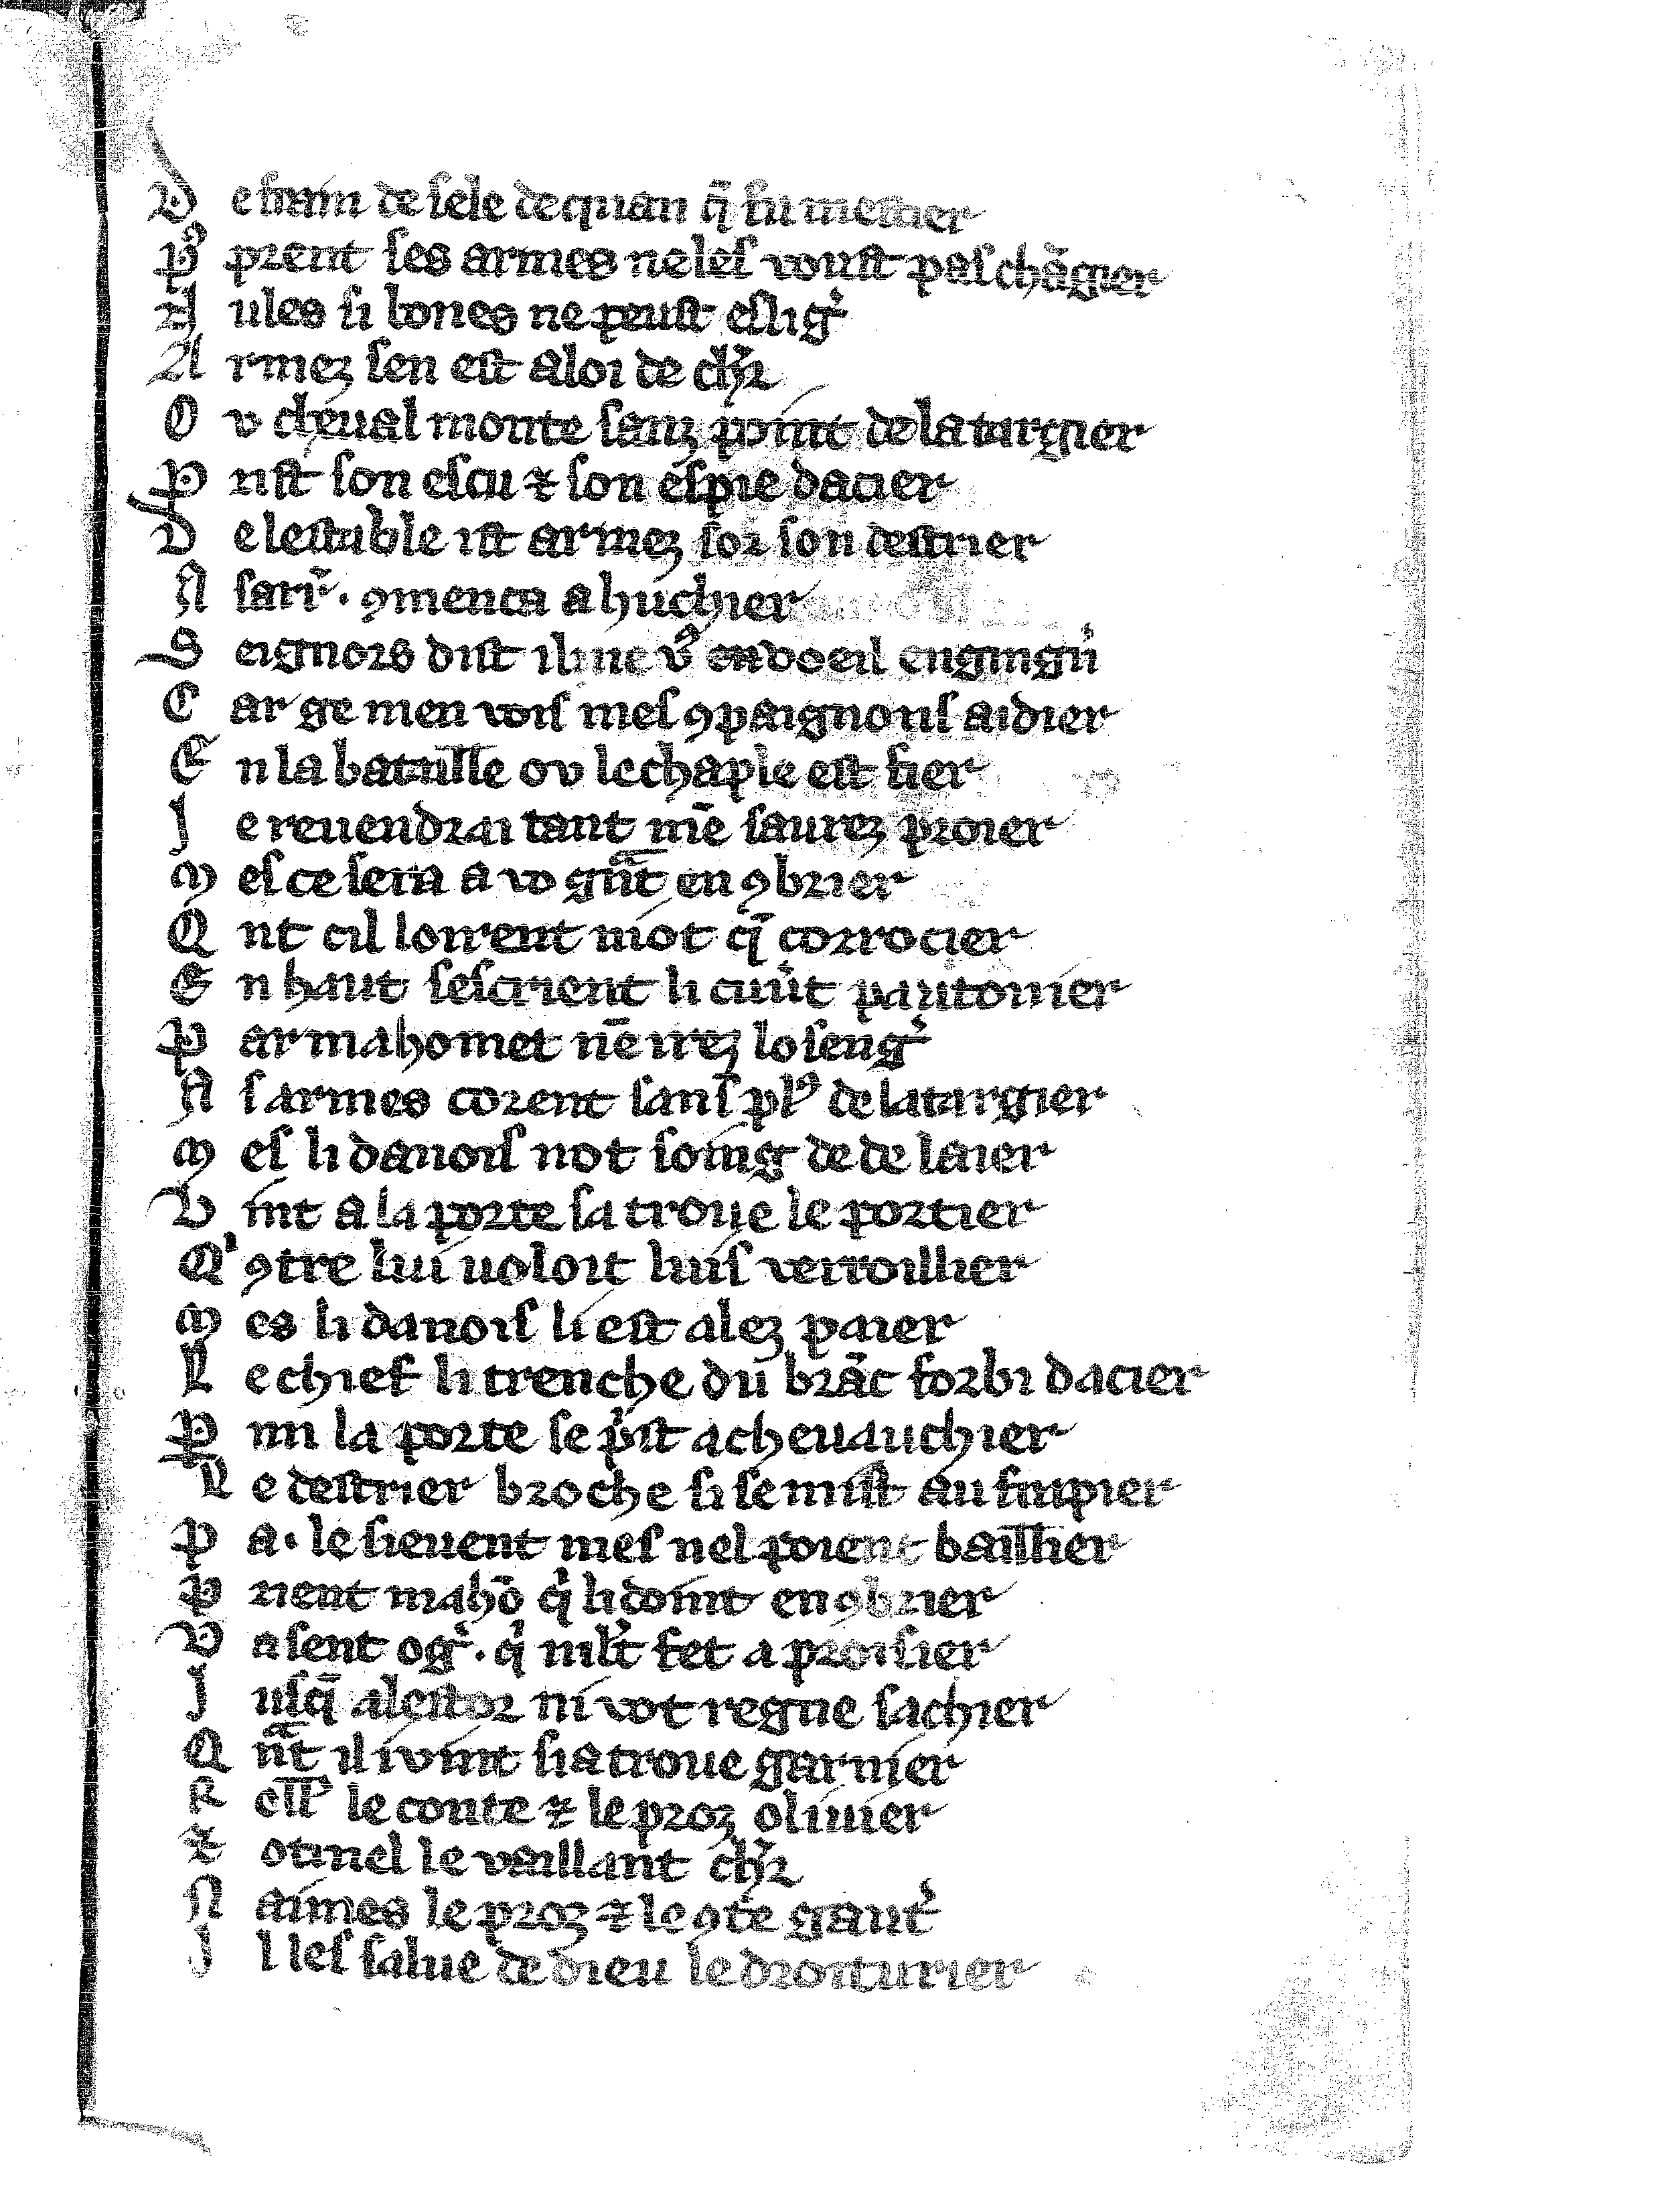 D e frain de sele de quan q̃ fu mestier
P᷒ prent ses armes ne les voust pas chãgier
N ules si bones ne peust eslig̓
A rmez sen est a loi de chl̓r
O v cheual monte sanz point de latargier
P rist son escu ⁊ son espie dacier
D e lestable ist armez sor son destrier
A sarr̓. ꝯmenca a huchier
S eignors dist il ne vꝰ en voeil engingn̓
C ar ge men vois mes ꝯpaignons aidier
E n la bataille ov le chaple est fier
J e reuendrai tant mẽ saurez proier
M es ce sera a vo gñt en ꝯbrier
Q nt cil loirent niot q̃ corrocier
E n haut sescrient li cuu̓t pautonier
P ar mahomet nẽ irez loseng̓
A s armes corent sans plꝰ de latargier
M es li danois not soing de de laier
V int a la porte sa troue le portier
Q̓ ꝯtre lui uoloit luis verroillier
M es li danois li est alez paier
L e chief li trenche du brãc forbi dacier
P mi la porte se p̓st a cheuauchier
L e destrier broche si se mist au frapier
P a. le sieuent mes nel poient baillier
P rient mahõ q̓ li doint en ꝯbrier
V a sent og̓. q̓ ml̓t fet a proisier
J usq̃ alestor ni vot regne sachier
Q ñt il i vint si a troue garnier
R oll̓ le conte ⁊ le proz oliuier
⁊ otinel le vaillant chl̓r
N aimes le proz ⁊ le ꝯte gaut̓
J l les salue de dieu le droiturier